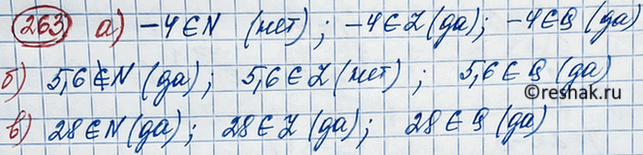 263 а) -4 ∈ N (нет); -4 ∈ Z (да); -4 ∈ Q (да)
б) 5,6 ∉ N (да); 5,6 ∈ Z (нет); 5,6 ∈ Q (да)
в) 28 ∈ N (да); 28 ∈ Z (да); 28 ∈ Q (да)
©reshak.ru